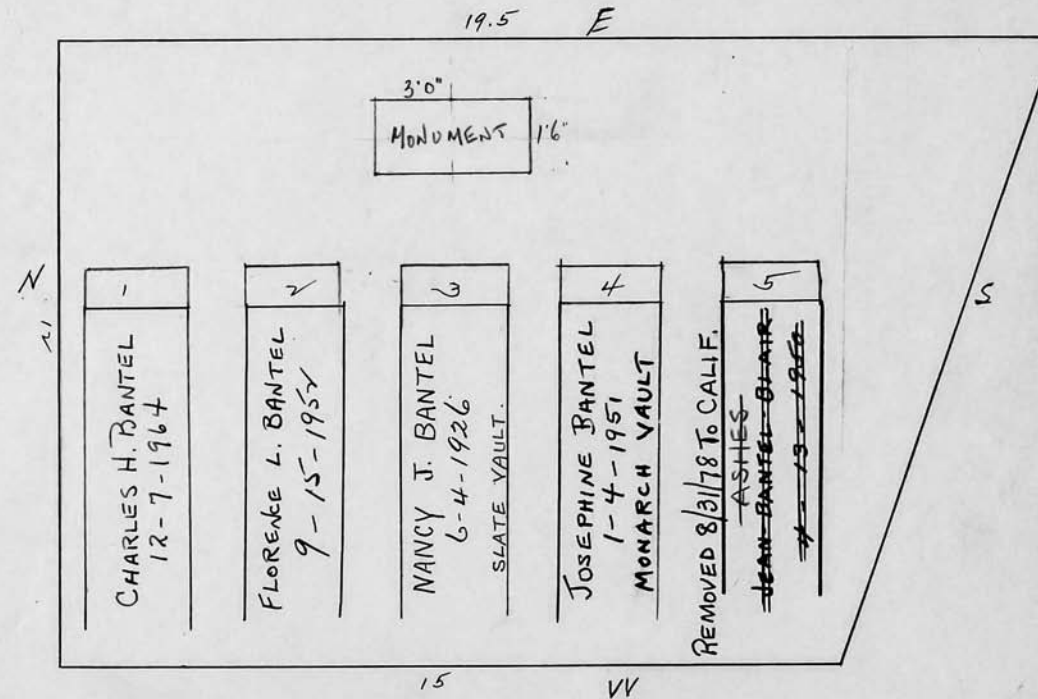 19.5 E
3'0"
MONUMENT 1'6"
N
12
S
1
CHARLES H. BANTEL
12-7-1964
2
FLORENCE L. BANTEL
9-15-1952
3
NANCY J. BANTEL
6-4-1926
SLATE VAULT.
4
JOSEPHINE BANTEL
1-4-1951
MONARCH VAULT
5
REMOVED 8/31/78 TO CALIF.
ASHES
JEAN BANTEL BLAIR
15 W